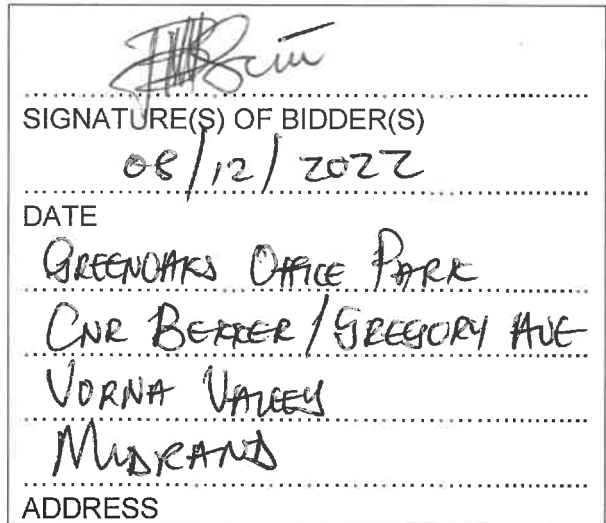 SIGNATURE(S) OF BIDDER(S)
08/12/2022
DATE
GREENOAKS OFFICE PARK
CNR BEKKER/GREGORY AVE
VORNA VALLEY
MIDRAND
ADDRESS